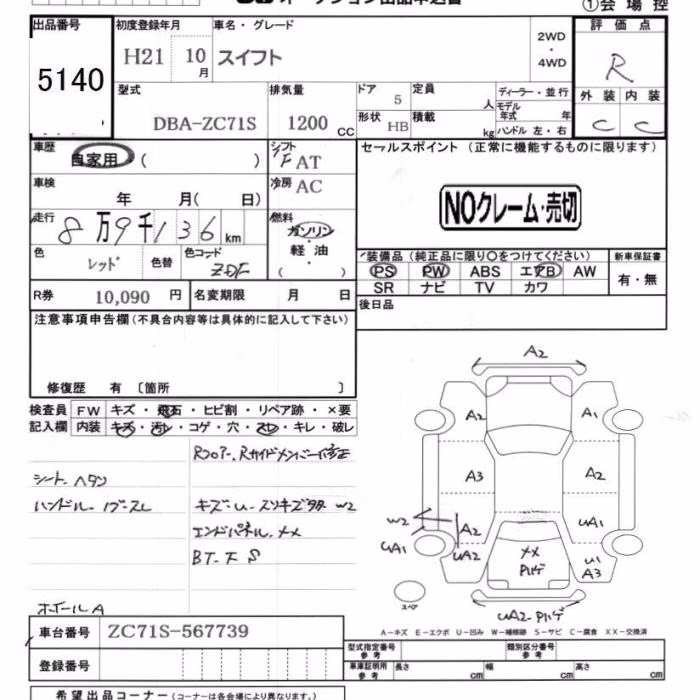 オークション出品申込書
①会場控
出品番号 初度登録年月 車名・グレード 2WD 評価点
5140 H21 10月 スイフト ・4WD R
型式 排気量 ドア 定員 ディーラー・並行 外装 内装
DBA-ZC71S 1200 CC 5 人 モデル年式 年 C C
形状 HB 積載 kg ハンドル 左・右
車歴 自家用 ( ) シフト F AT セールスポイント (正常に機能するものに限ります)
車検 年 月( 日) 冷房 AC
NOクレーム・売切
走行 8万9千136km 燃料 ガソリン
軽油
( )
色 レッド 色替 色コード ZDF
装備品 (純正品に限り○をつけてください) 新車保証書
PS PW ABS エアB AW 有・無
SR ナビ TV カワ
R券 10,090 円 名変期限 月 日 後日品
注意事項申告欄 (不具合内容等は具体的に記入して下さい)
修復歴 有 [箇所 ]
検査員 FW キズ・飛石・ヒビ割・リペア跡・×要
記入欄 内装 キズ・汚レ・コゲ・穴・スレ・キレ・破レ
Rフロアー、Rサイドメンバー修正
シート ヘタン
ハンドル キズ・U・スリキズ多久 W2
エンドパネル XX
BT.下 S
ホイールA
A2
A2 A1
A3 A2
W2 A2 UA1
UA1 UA2 XX Pハゲ U1 A3
スペア
UA2-Pハゲ
A-キズ E-エクボ U-凹み W-補修跡 S-サビ C-腐食 XX-交換済
車台番号 ZC71S-567739
型式指定番号 参考 類別区分番号 参考
登録番号
車庫証明用 参考 長さ cm 幅 cm 高さ cm
希望出品コーナー (コーナーは各会場により異なります。)